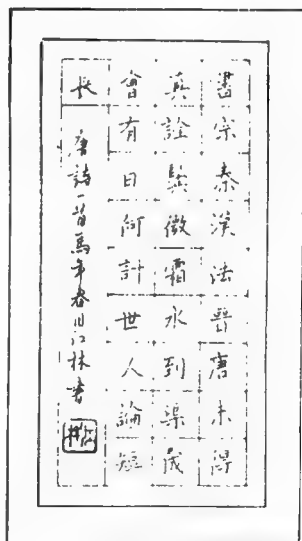 書宗秦漢法晉唐未得
真詮鬓微霜水到渠成
會有日何計世人論短
長
唐詩一首馬年春日江林書